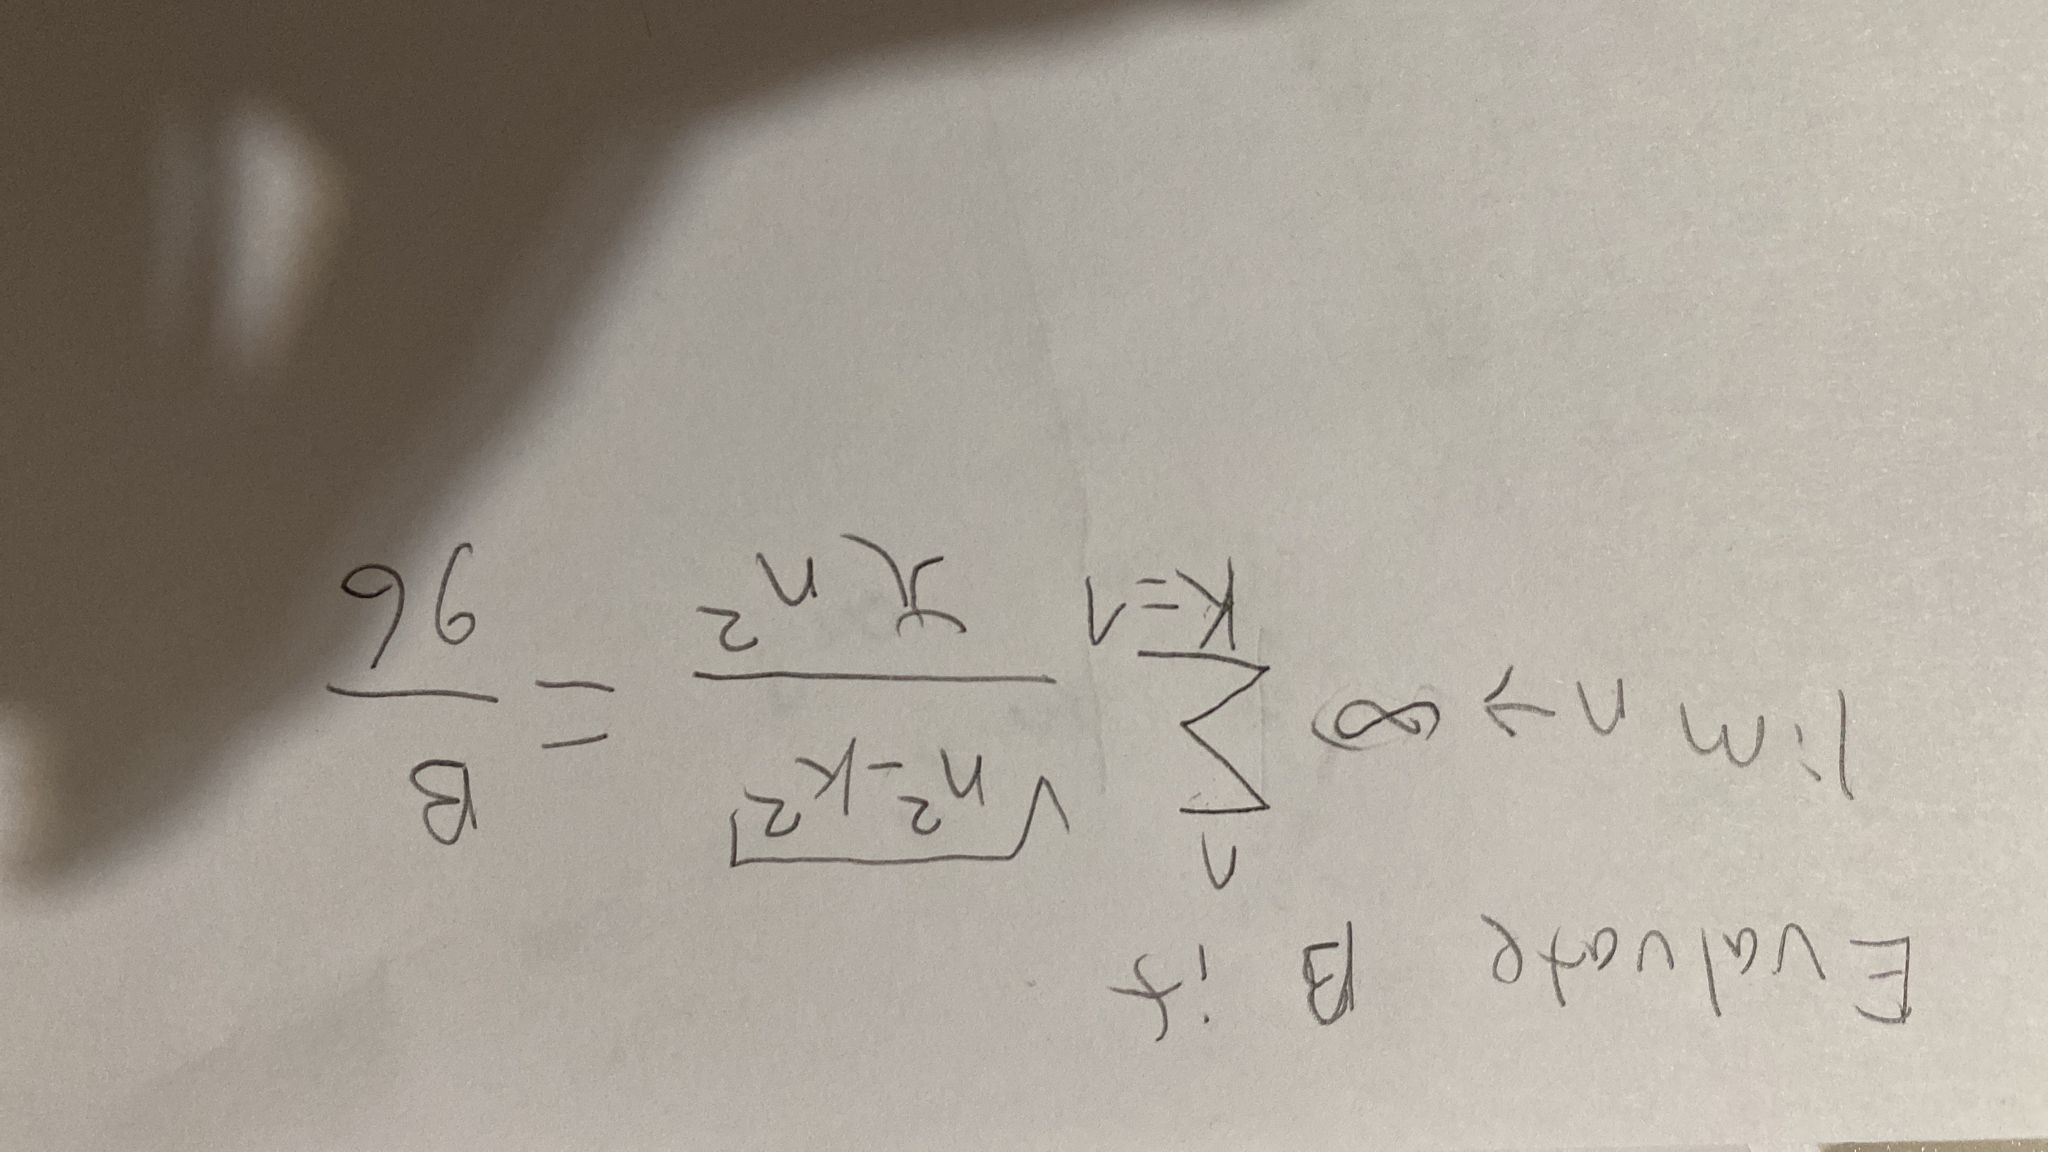 Evaluate B if
lim n→∞ n∑k=1 √(n²-k²) / πn² = B / 96